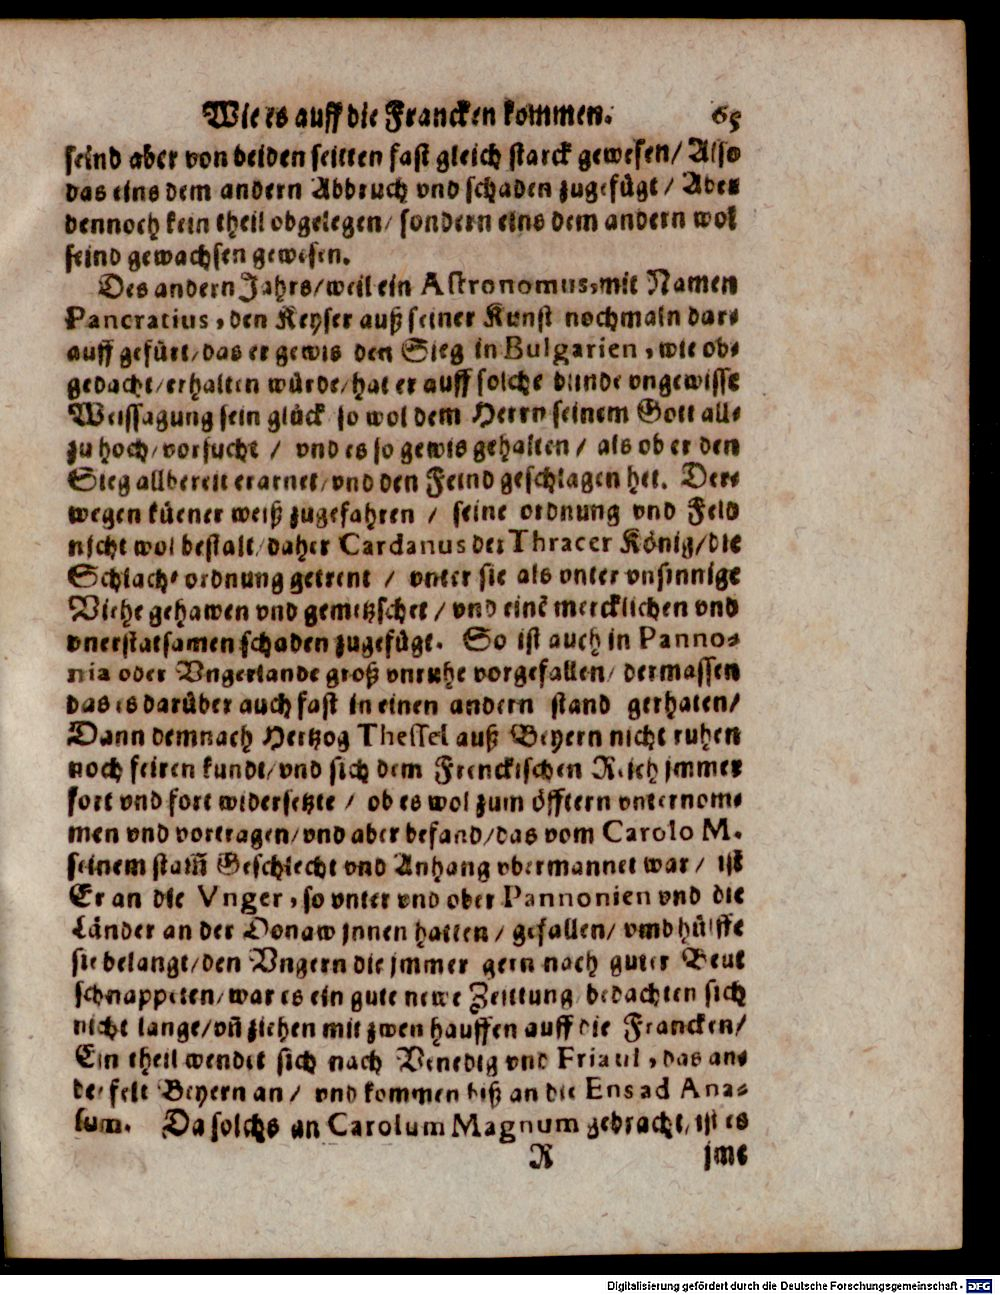 Wie es auff die Francken kommen. 65
seind aber von beiden seitten fast gleich starck gewesen/ Also
das eins dem andern Abbruch vnd schaden zugefügt / Aber
dennoch kein theil obgelegen/ sondern eins dem andern wol
feind gewachsen gewesen.
Des andern Jahrs/weil ein Astronomus, mit Namen
Pancratius, den Keyser auß seiner Kunst nochmaln dar⸗
auff gefürt/das er gewis den Sieg in Bulgarien, wie ob⸗
gedacht/erhalten würde/hat er auff solche blinde vngewisse
Weissagung sein glück so wol dem Herrn seinem Gott all⸗
zu hoch/vorsucht / vnd es so gewis gehalten / als ob er den
Sieg allbereit erarnet/vnd den Feind geschlagen het. Der⸗
wegen küener weiß zugefahren / seine ordnung vnd Feld
nicht wol bestalt/daher Cardanus der Thracer König/die
Schlacht ordnung getrent / vnter sie als vnter vnsinnige
Viehe gehawen vnd gemetzschet / vnd einē mercklichen vnd
vnerstatsamen schaden zugefügt. So ist auch in Panno⸗
nia oder Vngerlande groß vnruhe vorgefallen/ dermassen
das es darüber auch fast in einen andern stand gerhaten/
Dann demnach Hertzog Thessel auß Beyern nicht ruhen
noch feiren kundt/vnd sich dem Frenckischen Reich jmmer
fort vnd fort widersetzte / ob es wol zum öfftern vnternom⸗
men vnd vortragen/vnd aber befand/das vom Carolo M.
seinem stam̄ Geschlecht vnd Anhang vbermannet war/ ist
Er an die Vnger, so vnter vnd ober Pannonien vnd die
Länder an der Donaw jnnen hatten / gefallen/ vmb hülffe
sie belangt/den Vngern die jmmer gern nach guter Beut
schnappeten/war es ein gute newe Zeittung/bedachten sich
nicht lange/vn̄ ziehen mit zwen hauffen auff die Francken/
Ein theil wendet sich nach Venedig vnd Friaul, das an⸗
der felt Beyern an / vnd kommen biß an die Ens ad Ana⸗
sum. Da solchs an Carolum Magnum gebracht/ ist es
R jme
Digitalisierung gefördert durch die Deutsche Forschungsgemeinschaft - DFG